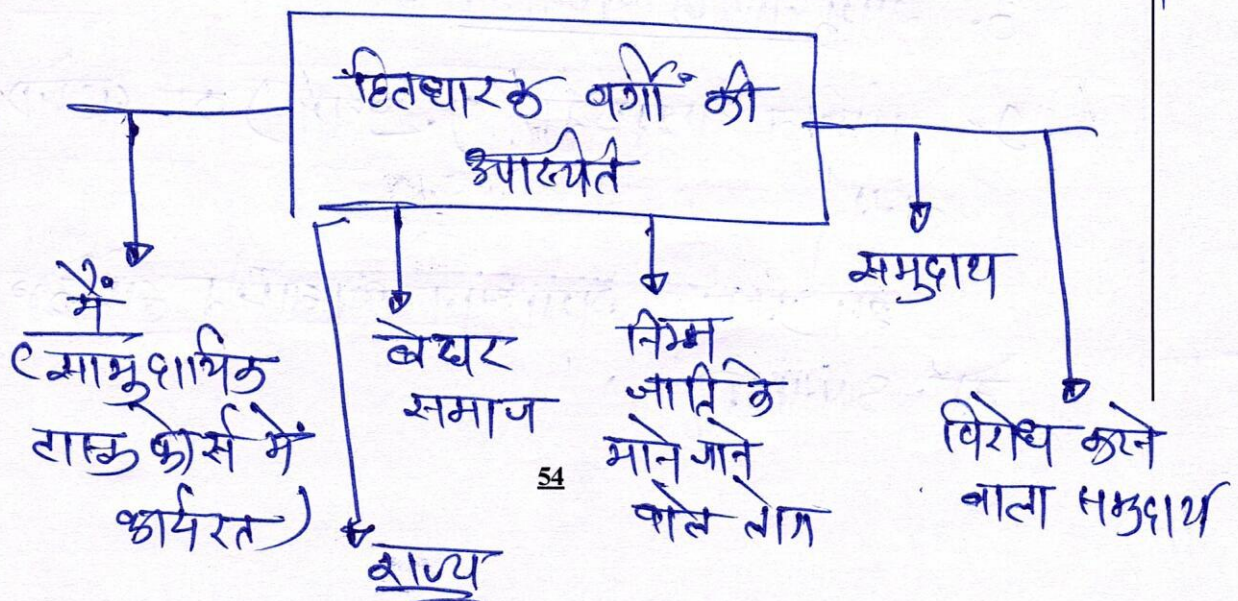 हितधारक वर्गों की
उपास्थेति
मैं
(सामुदायिक
टास्क फोर्स में
कार्यरत)
राज्य
बेघर
समाज
निम्न
जाति के
माने जाने
वाले लोग
समुदाय
विरोध करने
वाला समुदाय
54